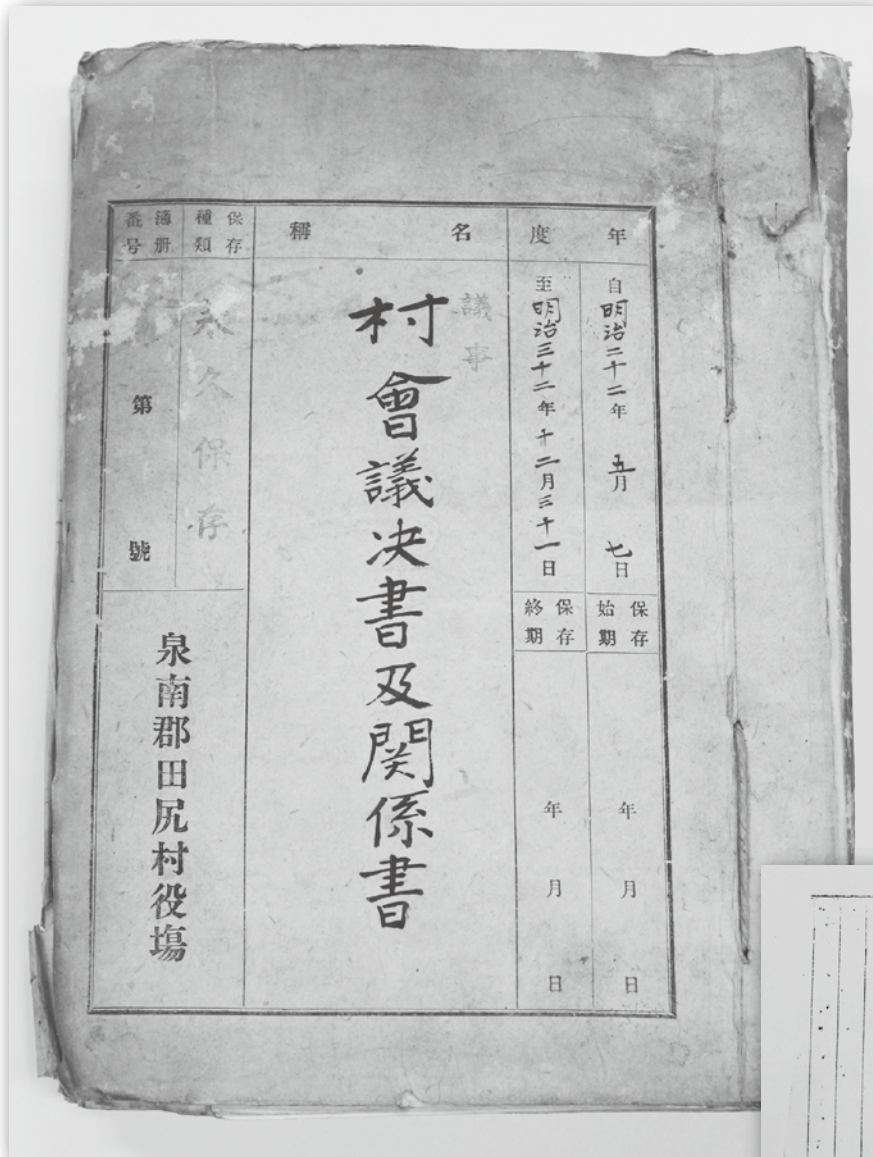 年度
自明治二十二年五月七日
至明治三十二年十二月三十一日
保存始期
年月日
保存終期
年月日
名稱
議事
村會議决書及関係書
保存種類
永久保存
簿册番号
第號
泉南郡田尻村役塲